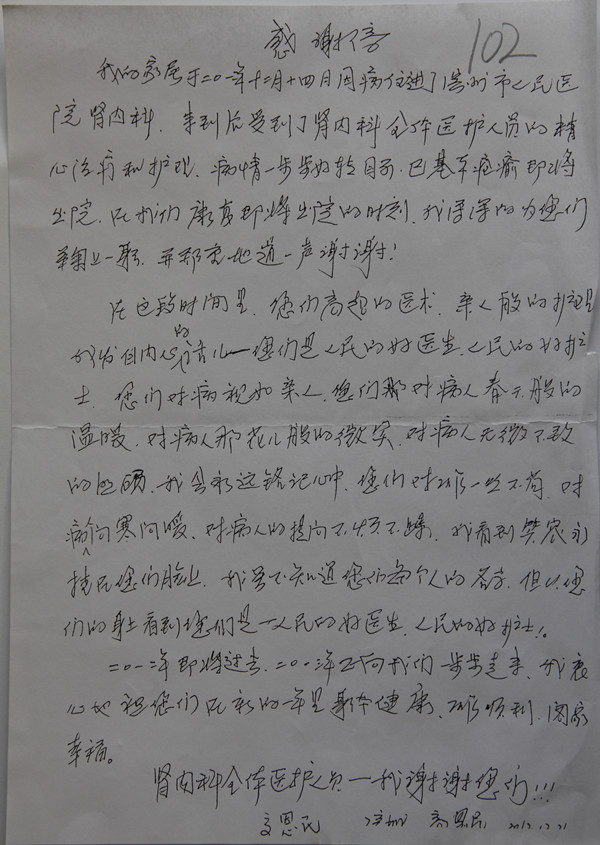 感谢信
102
我的家属于二0一年十二月十四日因病住进了滨州市人民医
院肾内科，来到后受到了肾内科全体医护人员的精
心治疗和护理，病情一步步好转目前，已基本痊愈即将
出院，在我们康复即将出院的时刻，我深深的为您们
鞠上一躬，并郑重地道一声谢谢！
在这段时间里，您们高超的医术，亲人般的护理
我发自内心的话儿—您们是人民的好医生，人民的好护
士，您们对病视如亲人，您们那对病人春天般的
温暖，对病人那花儿般的微笑，对病人无微不致
的照顾，我会永远铭记心中，您们对工作一丝不苟，对
病问寒问暖，对病人的提问不烦不燥，我看到笑容永
挂在您们脸上，我虽不知道您们每个人的名字，但从您
们的身上看到您们是一人民的好医生，人民的好护士。
二0一二年即将过去，二0一三年正向我们一步步走来，我衷
心地祝您们在新的一年里身体健康，工作顺利，阖家
幸福。
肾内科全体医护人员一我谢谢您们!!!
2012.12.21